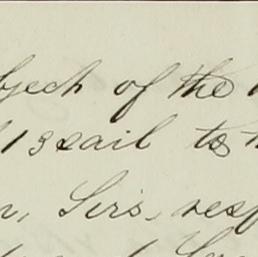 bject of the
13 sail to
n, Sirs, resp